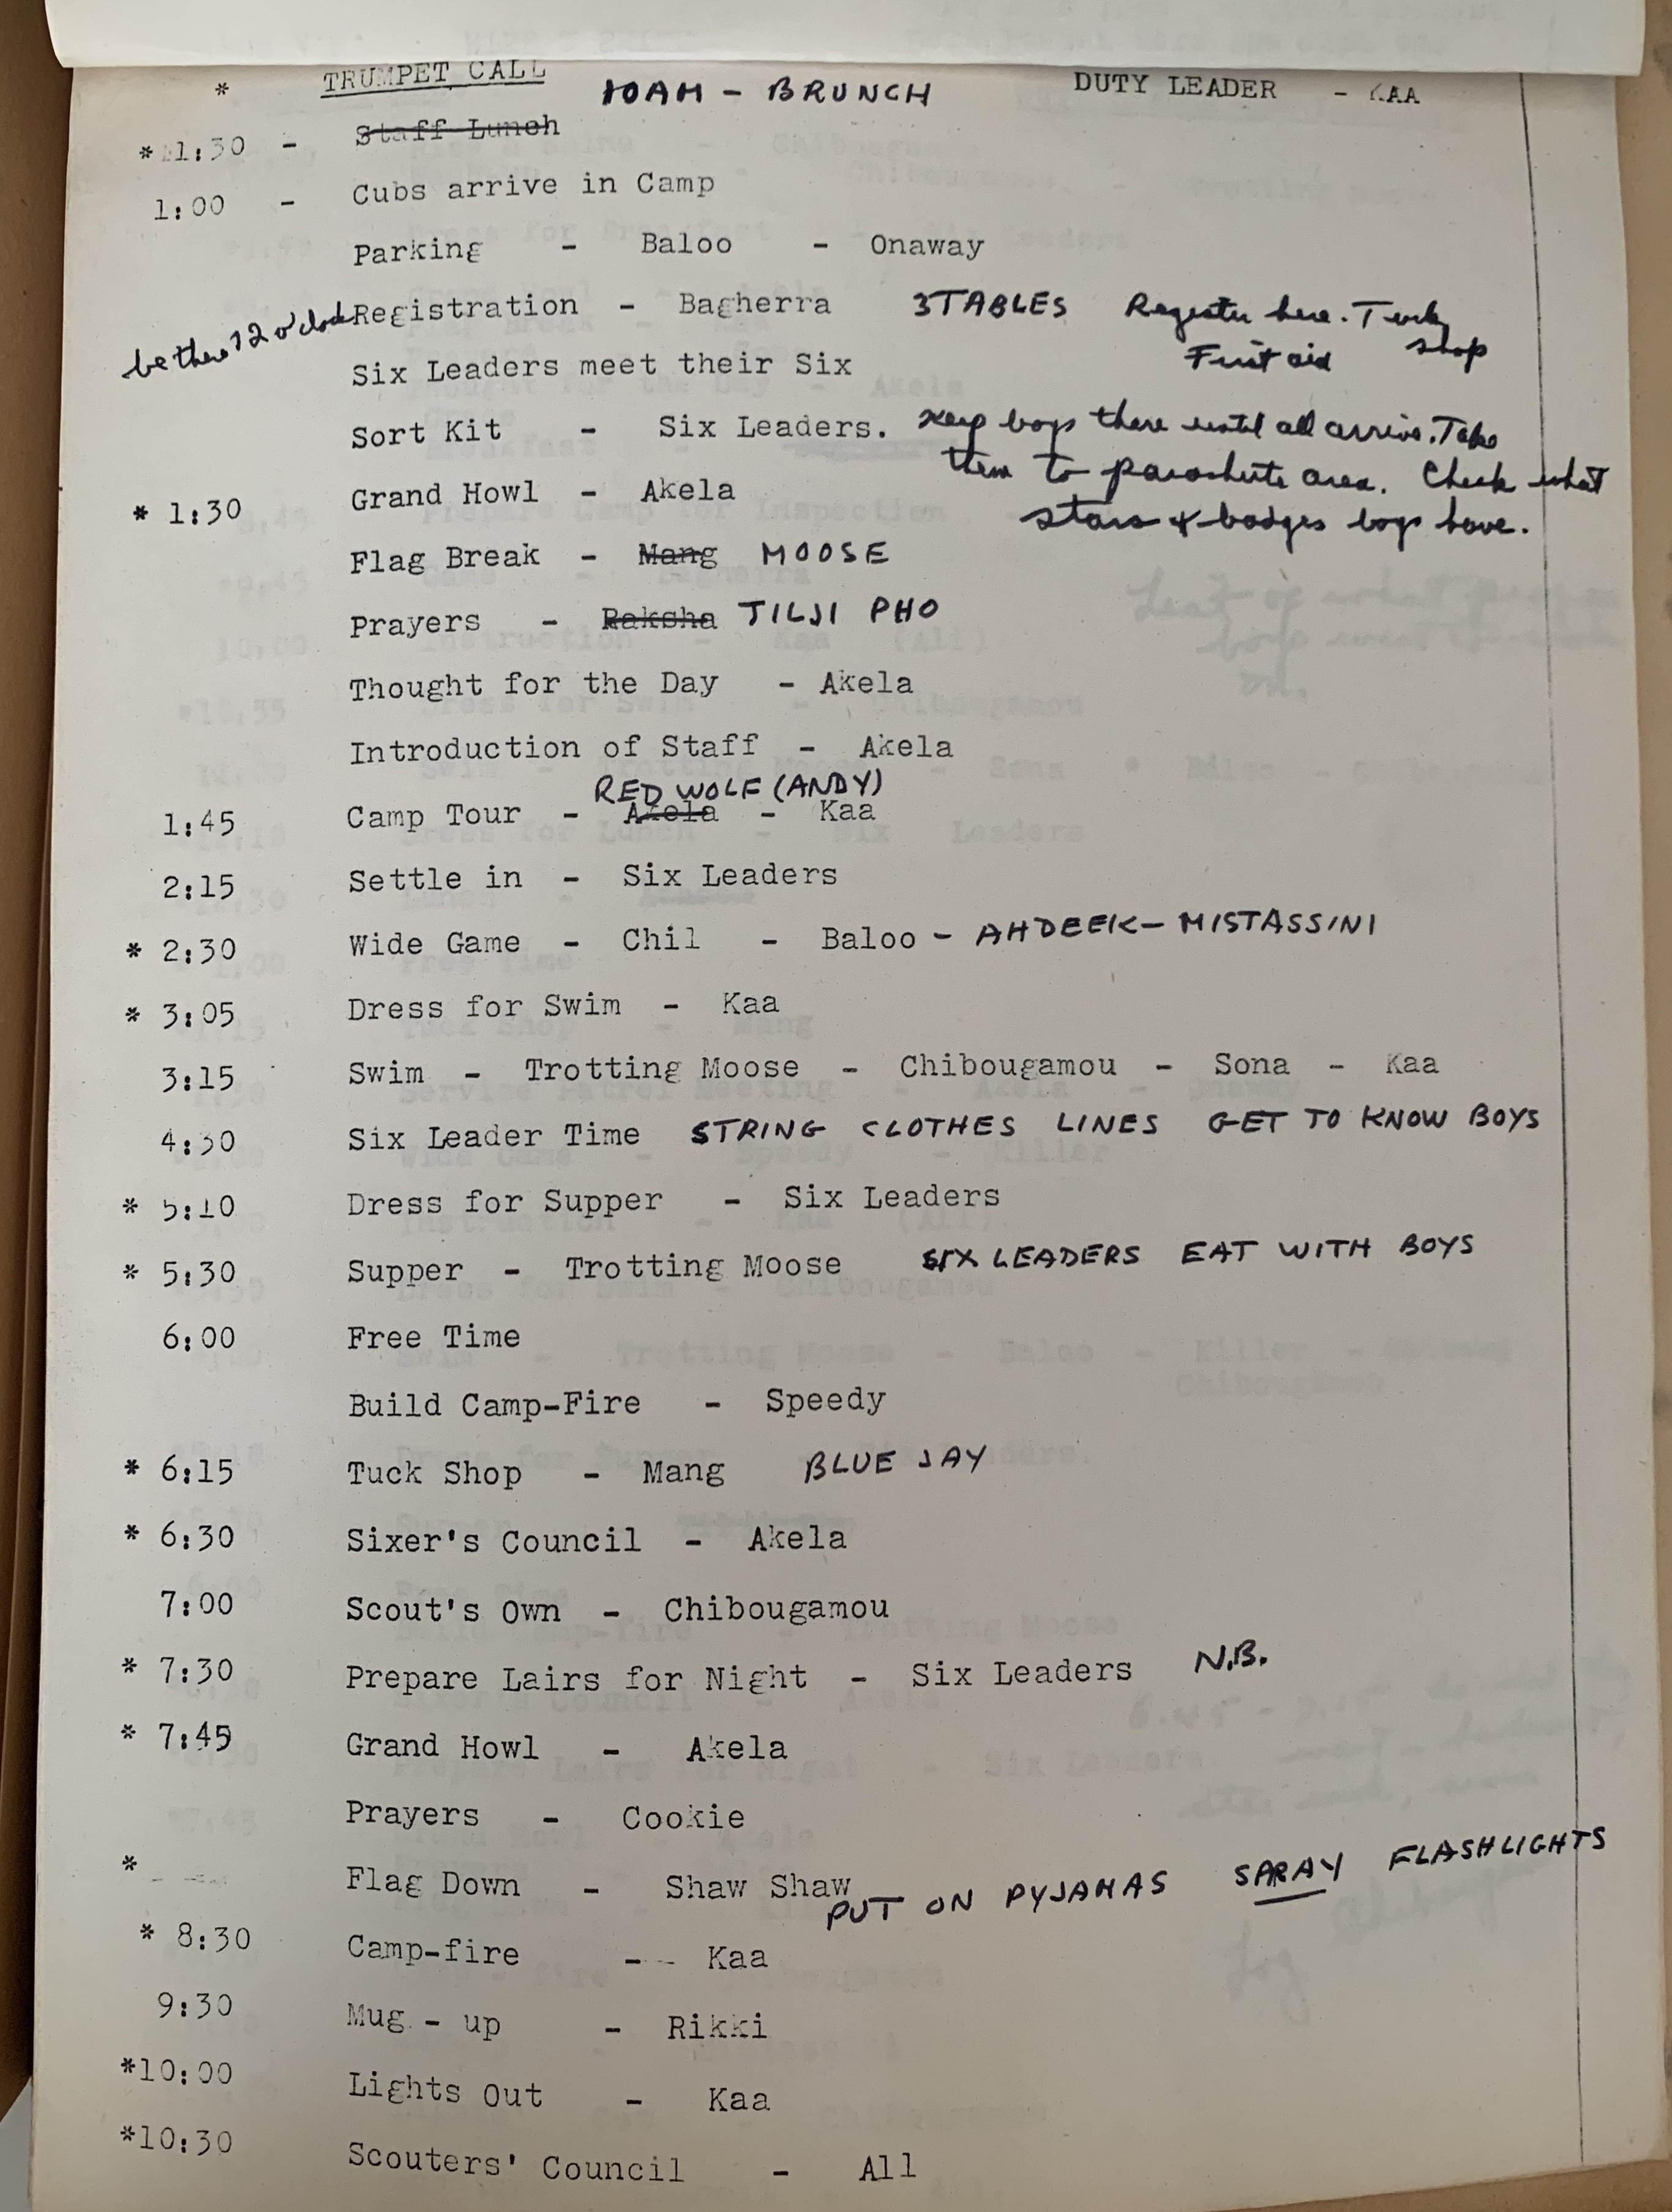 * TRUMPET CALL 10AM - BRUNCH DUTY LEADER - KAA
*11:30 - Staff Lunch
1:00 - Cubs arrive in Camp
Parking - Baloo - Onaway
be there 12 o'clock Registration - Bagherra 3 TABLES Register here. Tuck shop
First aid
Six Leaders meet their Six
Sort Kit - Six Leaders. Keep boys there until all arrive. Take
them to parachute area. Check what
* 1:30 Grand Howl - Akela
stars & badges boys have.
Flag Break - Mang MOOSE
Prayers - Raksha TILJI PHO
Thought for the Day - Akela
Introduction of Staff - Akela
RED WOLF (ANDY)
1:45 Camp Tour - Akela - Kaa
2:15 Settle in - Six Leaders
* 2:30 Wide Game - Chil - Baloo - AHDEEK - MISTASSINI
* 3:05 Dress for Swim - Kaa
3:15 Swim - Trotting Moose - Chibougamou - Sona - Kaa
4:30 Six Leader Time STRING CLOTHES LINES GET TO KNOW BOYS
* 5:10 Dress for Supper - Six Leaders
* 5:30 Supper - Trotting Moose SIX LEADERS EAT WITH BOYS
6:00 Free Time
Build Camp-Fire - Speedy
* 6:15 Tuck Shop - Mang BLUE JAY
* 6:30 Sixer's Council - Akela
7:00 Scout's Own - Chibougamou
* 7:30 Prepare Lairs for Night - Six Leaders N.B.
* 7:45 Grand Howl - Akela
Prayers - Cookie
* Flag Down - Shaw Shaw
PUT ON PYJAMAS SPRAY FLASHLIGHTS
* 8:30 Camp-fire - Kaa
9:30 Mug - up - Rikki
*10:00 Lights Out - Kaa
*10:30 Scouters' Council - All